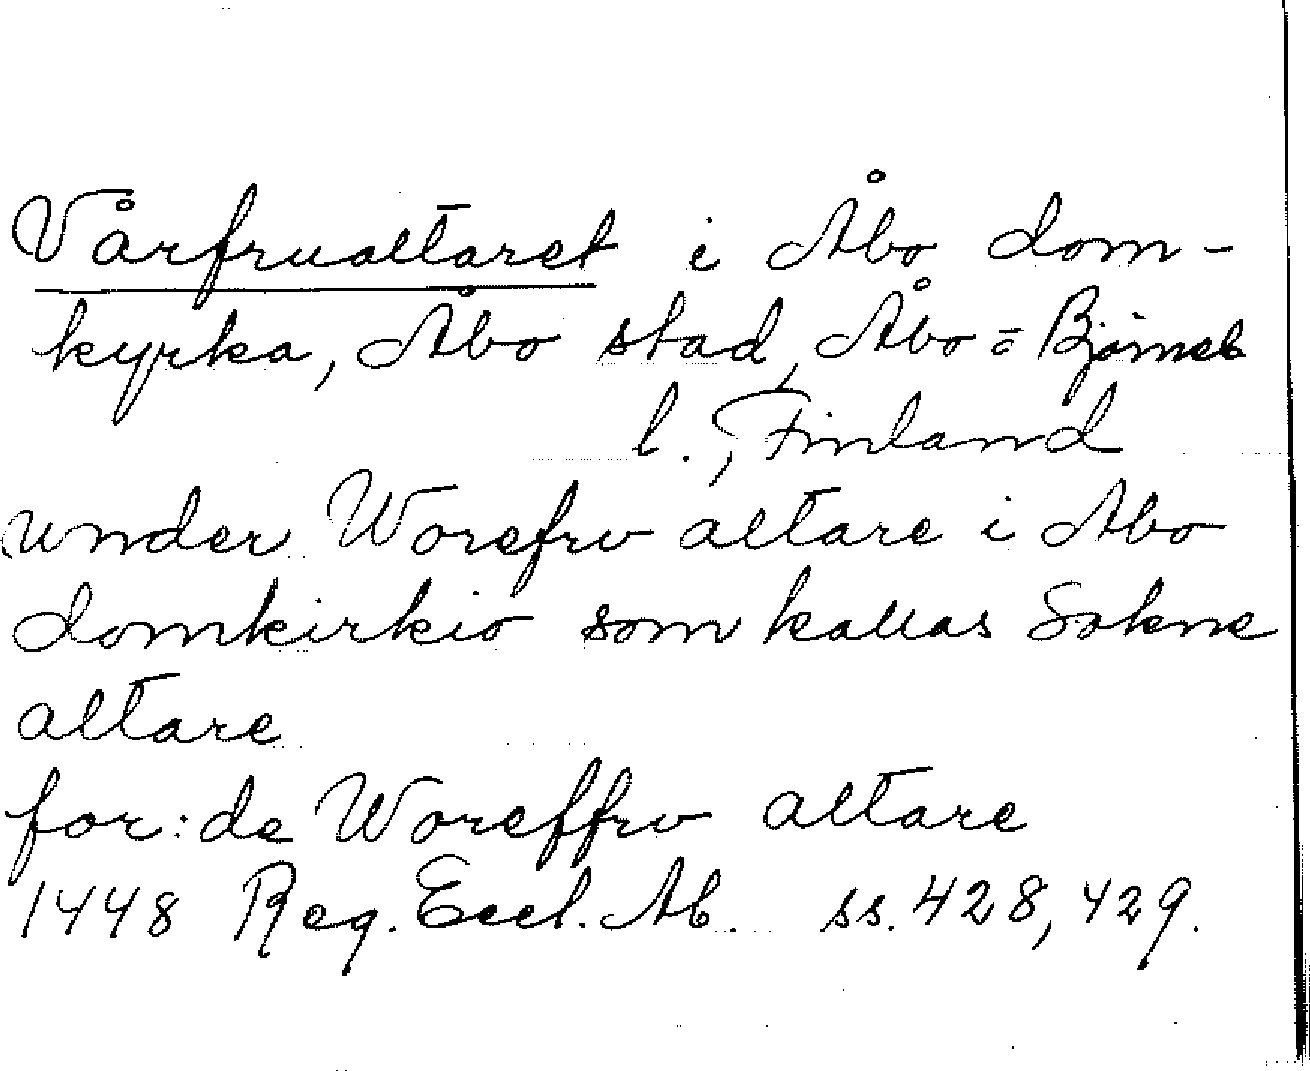 Vårfrualtaret i Åbo dom-
kyrka, Åbo stad, Åbo = Björneb
l., Finland
under Worefrv altare i Abo
domkirkio som kallas Sokne
altare
for: de Woreffrv altare
1448 Reg. Eccl. Ab. ss. 428, 429.